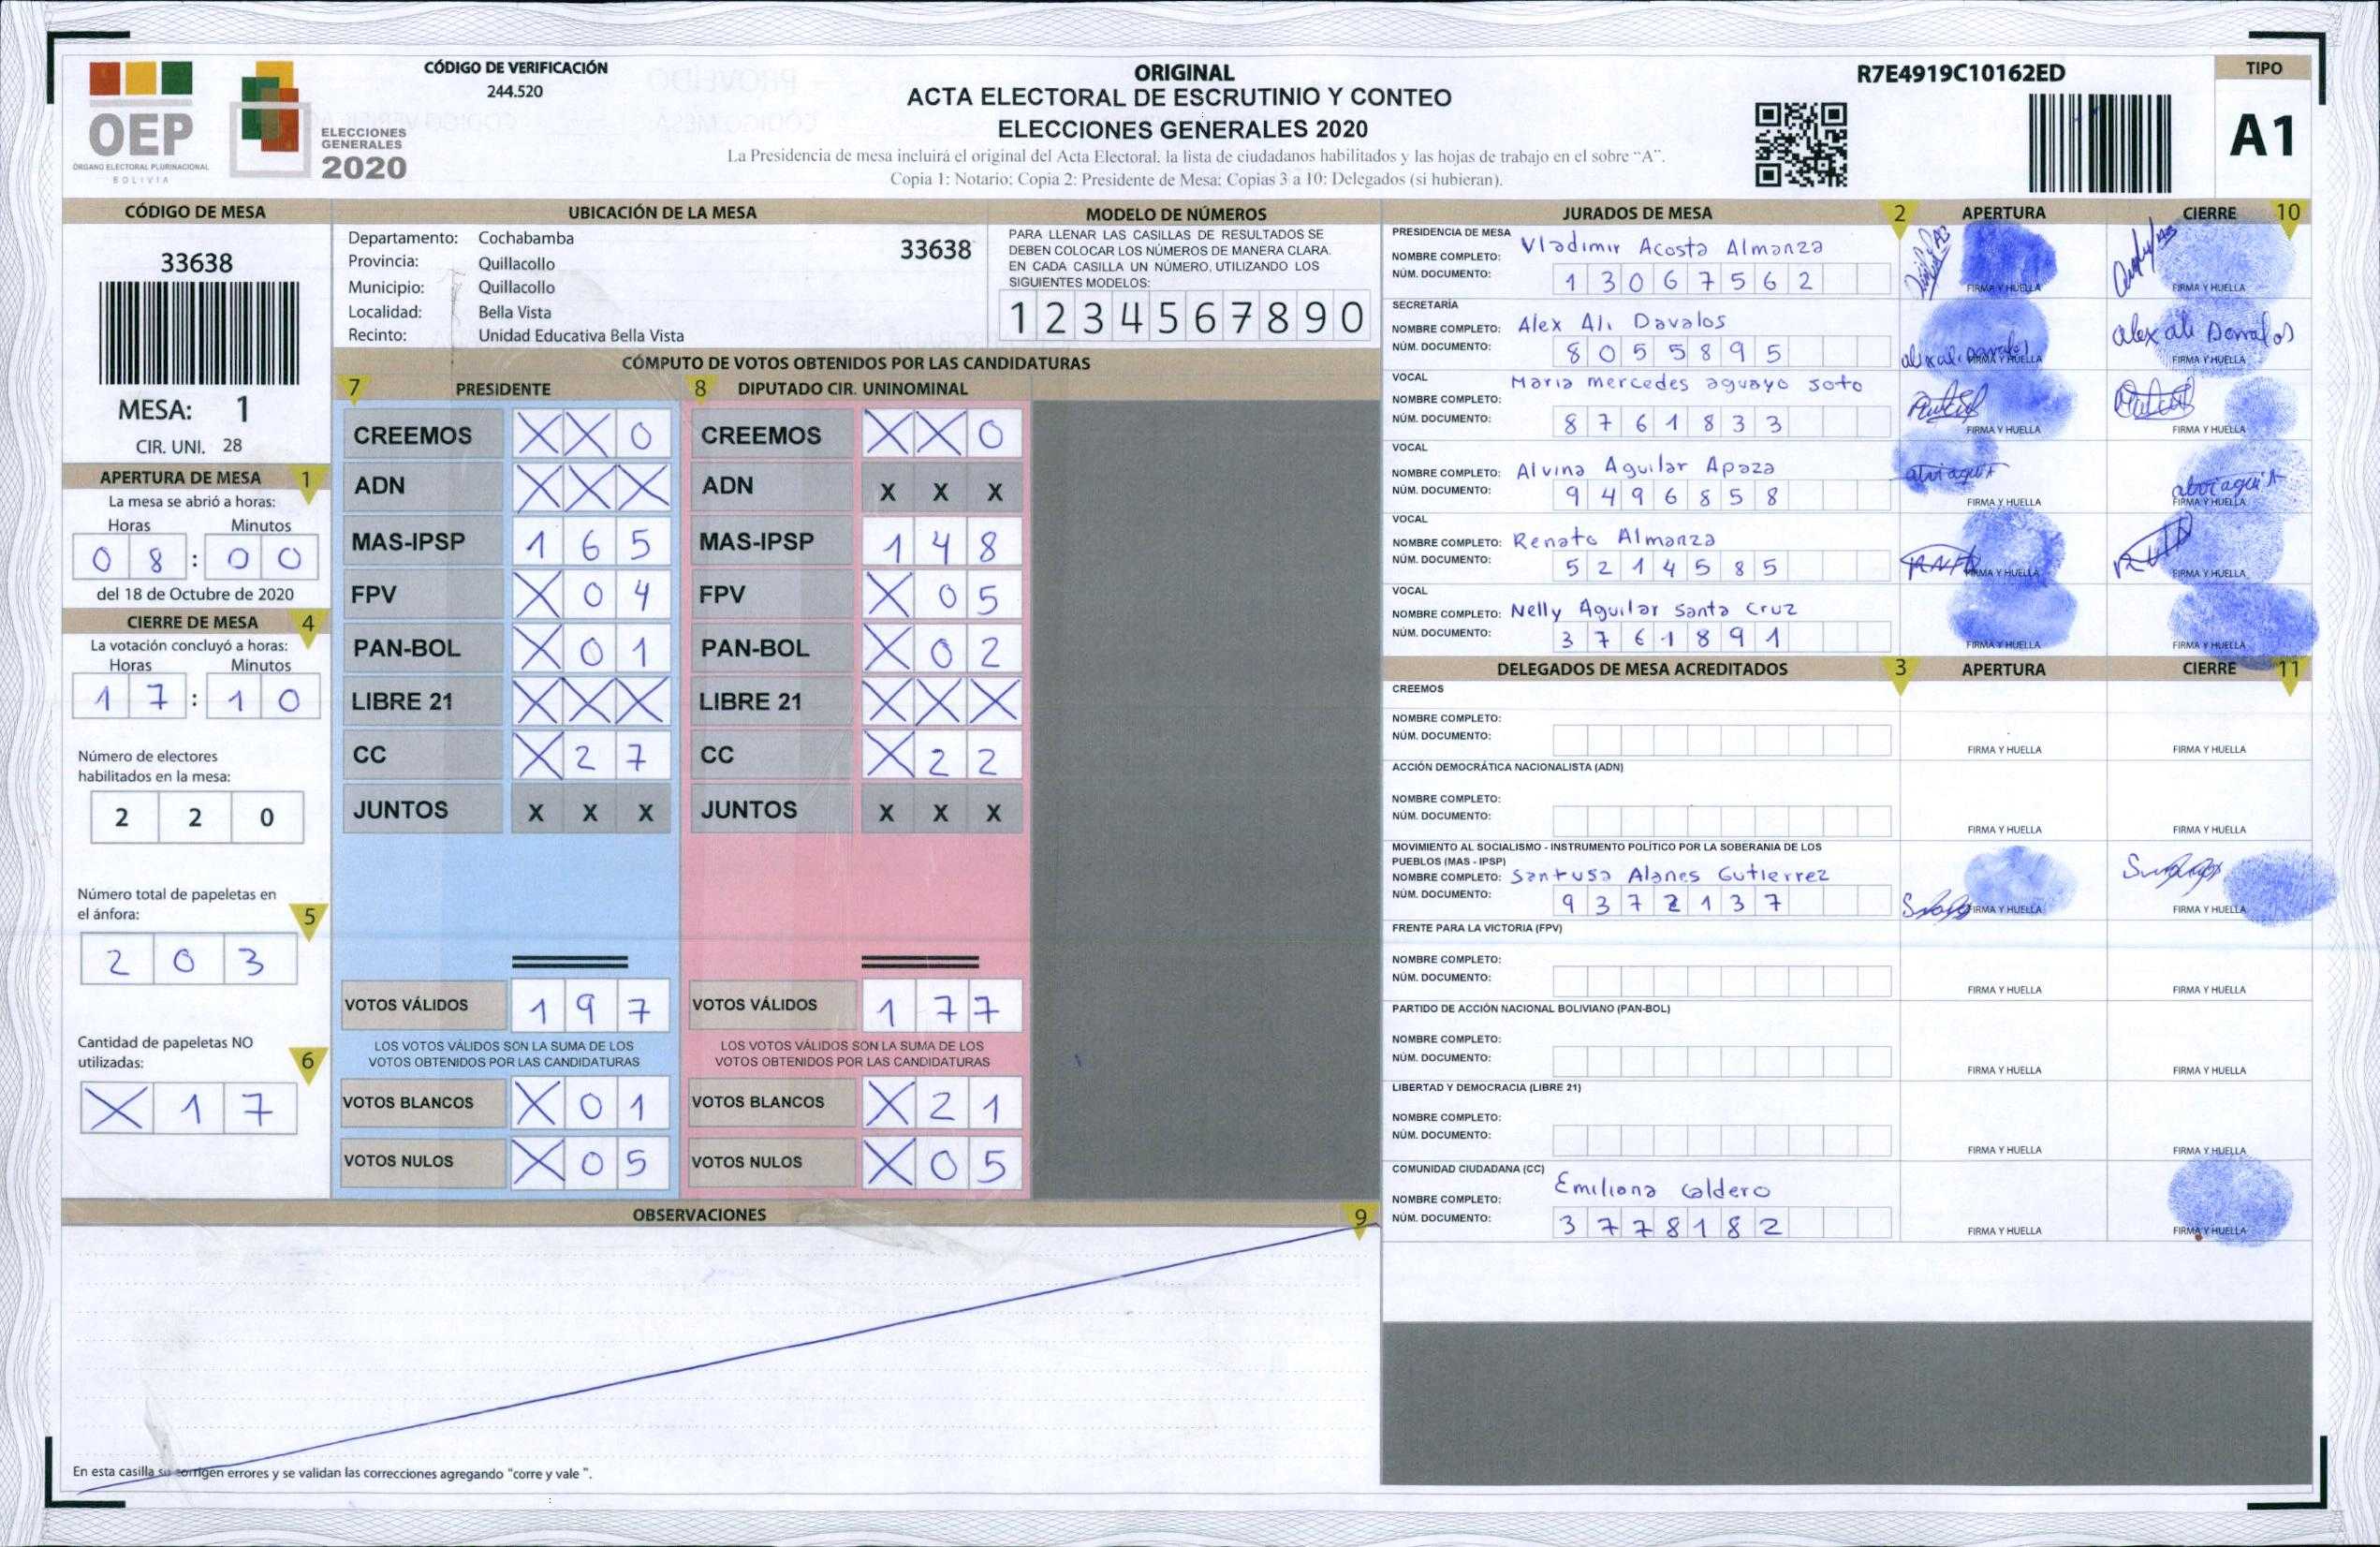 OEP
ÓRGANO ELECTORAL PLURINACIONAL
BOLIVIA
ELECCIONES
GENERALES
2020
CÓDIGO DE VERIFICACIÓN
244.520
ORIGINAL
ACTA ELECTORAL DE ESCRUTINIO Y CONTEO
ELECCIONES GENERALES 2020
La Presidencia de mesa incluirá el original del Acta Electoral, la lista de ciudadanos habilitados y las hojas de trabajo en el sobre "A".
Copia 1: Notario; Copia 2: Presidente de Mesa; Copias 3 a 10: Delegados (si hubieran).
R7E4919C10162ED
TIPO
A1
CÓDIGO DE MESA
33638
MESA: 1
CIR. UNI. 28
APERTURA DE MESA 1
La mesa se abrió a horas:
Horas Minutos
0 8 : 0 0
del 18 de Octubre de 2020
CIERRE DE MESA 4
La votación concluyó a horas:
Horas Minutos
1 7 : 1 0
Número de electores
habilitados en la mesa:
2 2 0
Número total de papeletas en
el ánfora: 5
2 0 3
Cantidad de papeletas NO
utilizadas: 6
X 1 7
UBICACIÓN DE LA MESA
Departamento: Cochabamba 33638
Provincia: Quillacollo
Municipio: Quillacollo
Localidad: Bella Vista
Recinto: Unidad Educativa Bella Vista
MODELO DE NÚMEROS
PARA LLENAR LAS CASILLAS DE RESULTADOS SE
DEBEN COLOCAR LOS NÚMEROS DE MANERA CLARA.
EN CADA CASILLA UN NÚMERO, UTILIZANDO LOS
SIGUIENTES MODELOS:
1 2 3 4 5 6 7 8 9 0
CÓMPUTO DE VOTOS OBTENIDOS POR LAS CANDIDATURAS
7 PRESIDENTE 8 DIPUTADO CIR. UNINOMINAL
CREEMOS X X 0 CREEMOS X X 0
ADN X X X ADN X X X
MAS-IPSP 1 6 5 MAS-IPSP 1 4 8
FPV X 0 4 FPV X 0 5
PAN-BOL X 0 1 PAN-BOL X 0 2
LIBRE 21 X X X LIBRE 21 X X X
CC X 2 7 CC X 2 2
JUNTOS X X X JUNTOS X X X
VOTOS VÁLIDOS 1 9 7 VOTOS VÁLIDOS 1 7 7
LOS VOTOS VÁLIDOS SON LA SUMA DE LOS LOS VOTOS VÁLIDOS SON LA SUMA DE LOS
VOTOS OBTENIDOS POR LAS CANDIDATURAS VOTOS OBTENIDOS POR LAS CANDIDATURAS
VOTOS BLANCOS X 0 1 VOTOS BLANCOS X 2 1
VOTOS NULOS X 0 5 VOTOS NULOS X 0 5
OBSERVACIONES 9
En esta casilla se corrigen errores y se validan las correcciones agregando "corre y vale ".
JURADOS DE MESA 2 APERTURA CIERRE 10
PRESIDENCIA DE MESA
NOMBRE COMPLETO: Vladimir Acosta Almanza
NÚM. DOCUMENTO: 1 3 0 6 7 5 6 2
FIRMA Y HUELLA FIRMA Y HUELLA
SECRETARÍA
NOMBRE COMPLETO: Alex Ali Davalos
NÚM. DOCUMENTO: 8 0 5 5 8 9 5
FIRMA Y HUELLA FIRMA Y HUELLA
VOCAL
NOMBRE COMPLETO: Maria mercedes aguayo soto
NÚM. DOCUMENTO: 8 7 6 1 8 3 3
FIRMA Y HUELLA FIRMA Y HUELLA
VOCAL
NOMBRE COMPLETO: Alvina Aguilar Apaza
NÚM. DOCUMENTO: 9 4 9 6 8 5 8
FIRMA Y HUELLA FIRMA Y HUELLA
VOCAL
NOMBRE COMPLETO: Renato Almanza
NÚM. DOCUMENTO: 5 2 1 4 5 8 5
FIRMA Y HUELLA FIRMA Y HUELLA
VOCAL
NOMBRE COMPLETO: Nelly Aguilar Santa Cruz
NÚM. DOCUMENTO: 3 7 6 1 8 9 1
FIRMA Y HUELLA FIRMA Y HUELLA
DELEGADOS DE MESA ACREDITADOS 3 APERTURA CIERRE 11
CREEMOS
NOMBRE COMPLETO:
NÚM. DOCUMENTO:
FIRMA Y HUELLA FIRMA Y HUELLA
ACCIÓN DEMOCRÁTICA NACIONALISTA (ADN)
NOMBRE COMPLETO:
NÚM. DOCUMENTO:
FIRMA Y HUELLA FIRMA Y HUELLA
MOVIMIENTO AL SOCIALISMO - INSTRUMENTO POLÍTICO POR LA SOBERANIA DE LOS
PUEBLOS (MAS - IPSP)
NOMBRE COMPLETO: Santusa Alanes Gutierrez
NÚM. DOCUMENTO: 9 3 7 2 1 3 7
FIRMA Y HUELLA FIRMA Y HUELLA
FRENTE PARA LA VICTORIA (FPV)
NOMBRE COMPLETO:
NÚM. DOCUMENTO:
FIRMA Y HUELLA FIRMA Y HUELLA
PARTIDO DE ACCIÓN NACIONAL BOLIVIANO (PAN-BOL)
NOMBRE COMPLETO:
NÚM. DOCUMENTO:
FIRMA Y HUELLA FIRMA Y HUELLA
LIBERTAD Y DEMOCRACIA (LIBRE 21)
NOMBRE COMPLETO:
NÚM. DOCUMENTO:
FIRMA Y HUELLA FIRMA Y HUELLA
COMUNIDAD CIUDADANA (CC)
NOMBRE COMPLETO: Emiliana Caldero
NÚM. DOCUMENTO: 3 7 7 8 1 8 2
FIRMA Y HUELLA FIRMA Y HUELLA